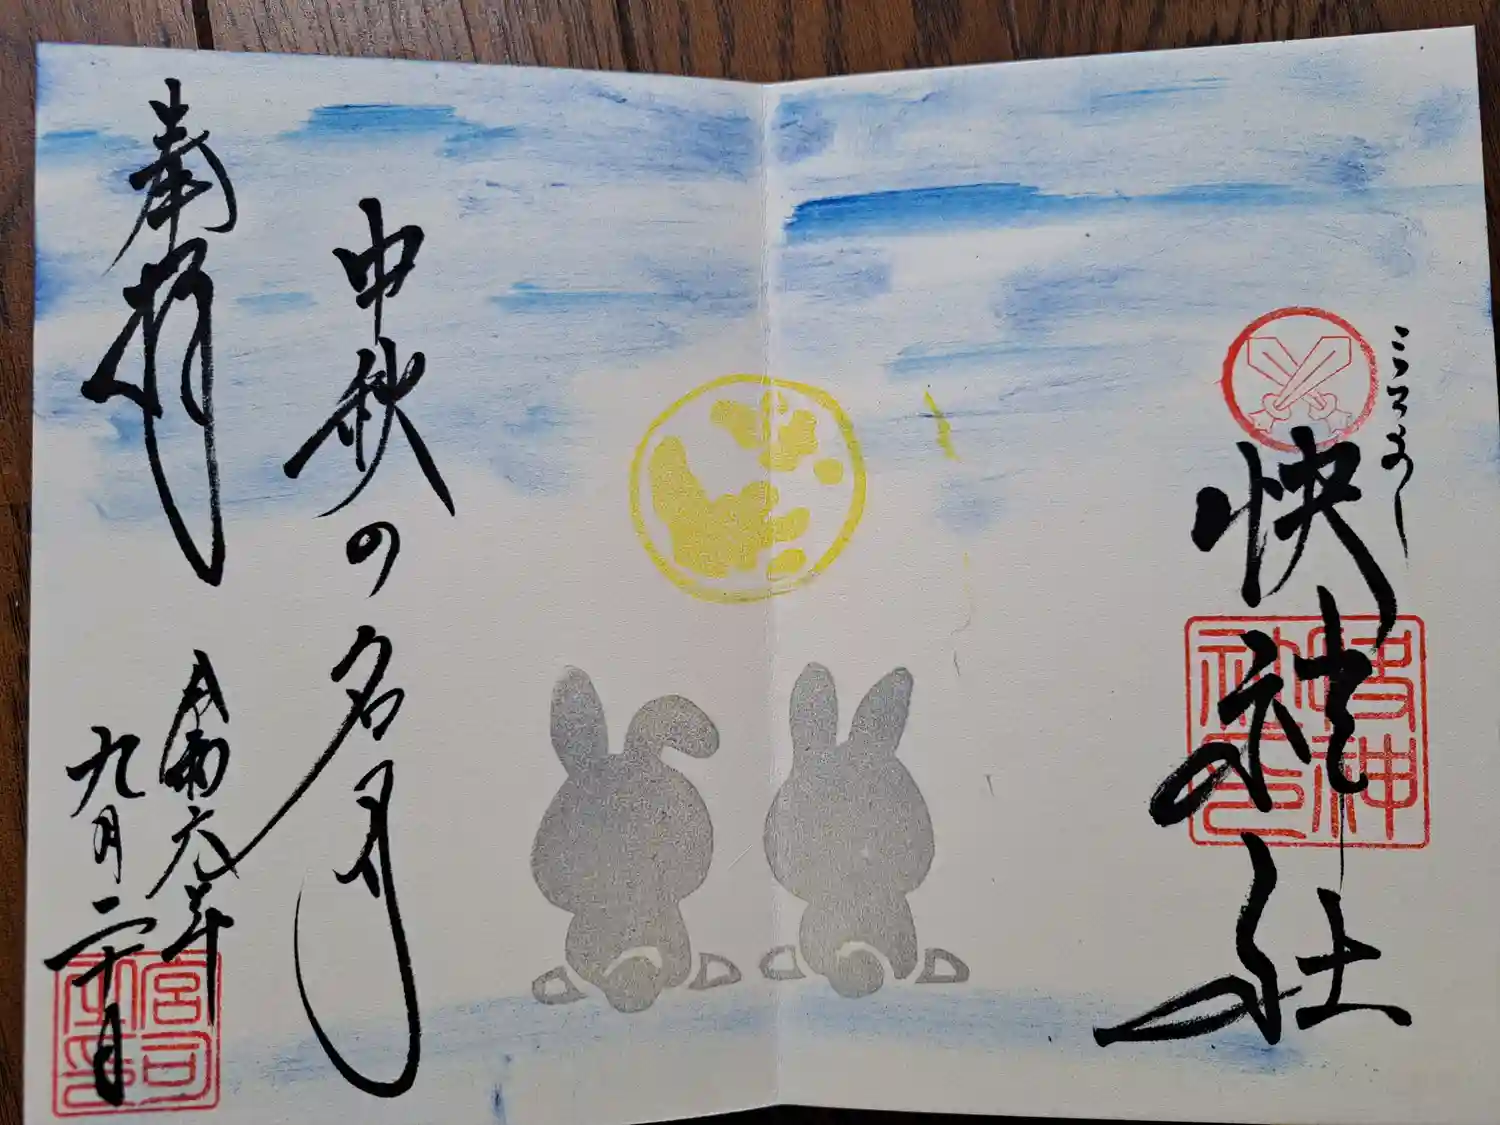 こころよし
快神社
快神社印
中秋の名月
奉拝
令和六年
九月二十日
宮司之印